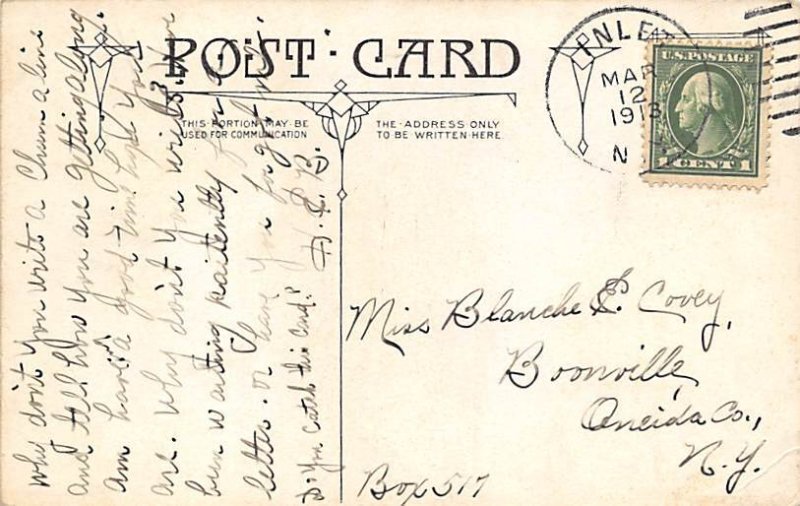 POST CARD
THIS PORTION MAY BE
USED FOR COMMUNICATION
THE ADDRESS ONLY
TO BE WRITTEN HERE
INLET
MAR
12
1913
N
U.S. POSTAGE
1 CENT 1
why don't you write a Chum a line
and tell how you are getting along.
am having a good time hope you
are. Why don't you write. Have
been waiting patiently for a
letter. or have you forgotten me.
Do You Catch this Card?
Miss Blanche E. Covey,
Boonville,
Oneida Co.,
N.Y.
Box 517